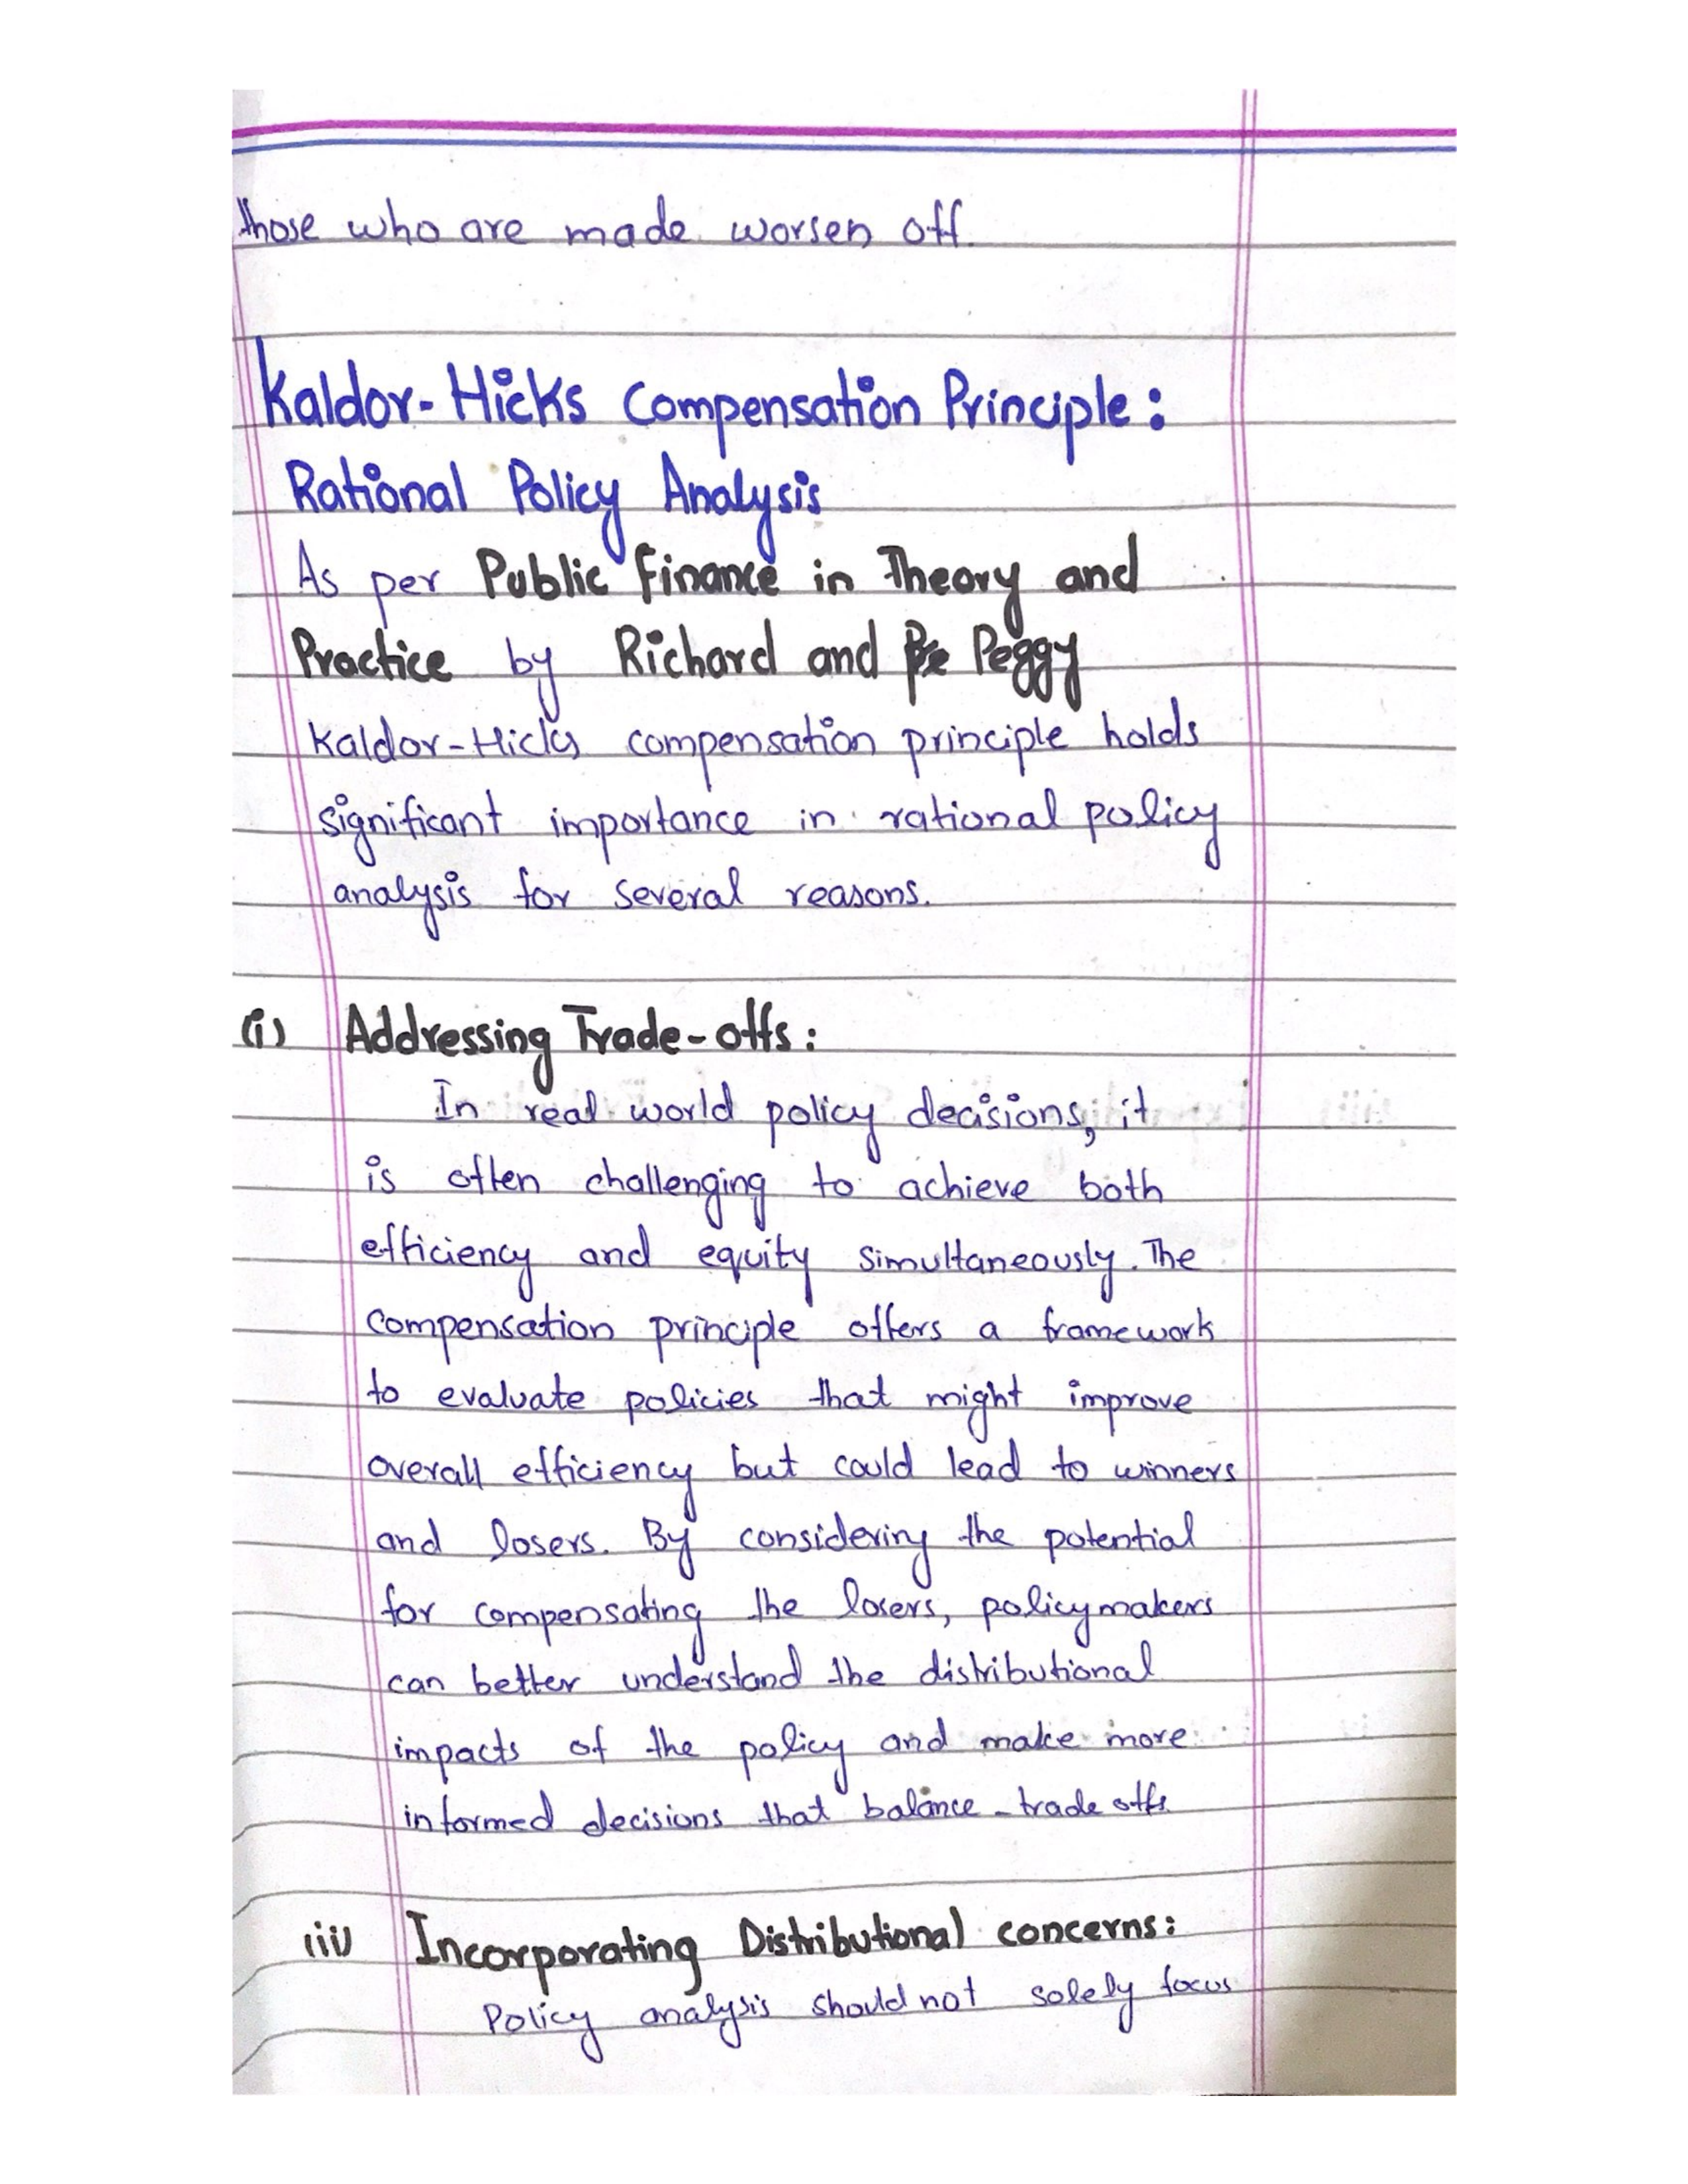 those who are made worsen off.
Kaldor-Hicks Compensation Principle:
Rational Policy Analysis
As per Public Finance in Theory and
Practice by Richard and Peggy
Kaldor-Hicks compensation principle holds
significant importance in rational policy
analysis for several reasons.
(i) Addressing Trade-offs:
In real world policy decisions, it
is often challenging to achieve both
efficiency and equity simultaneously. The
compensation principle offers a framework
to evaluate policies that might improve
overall efficiency but could lead to winners
and losers. By considering the potential
for compensating the losers, policymakers
can better understand the distributional
impacts of the policy and make more
informed decisions that balance trade offs.
(ii) Incorporating Distributional concerns:
Policy analysis should not solely focus